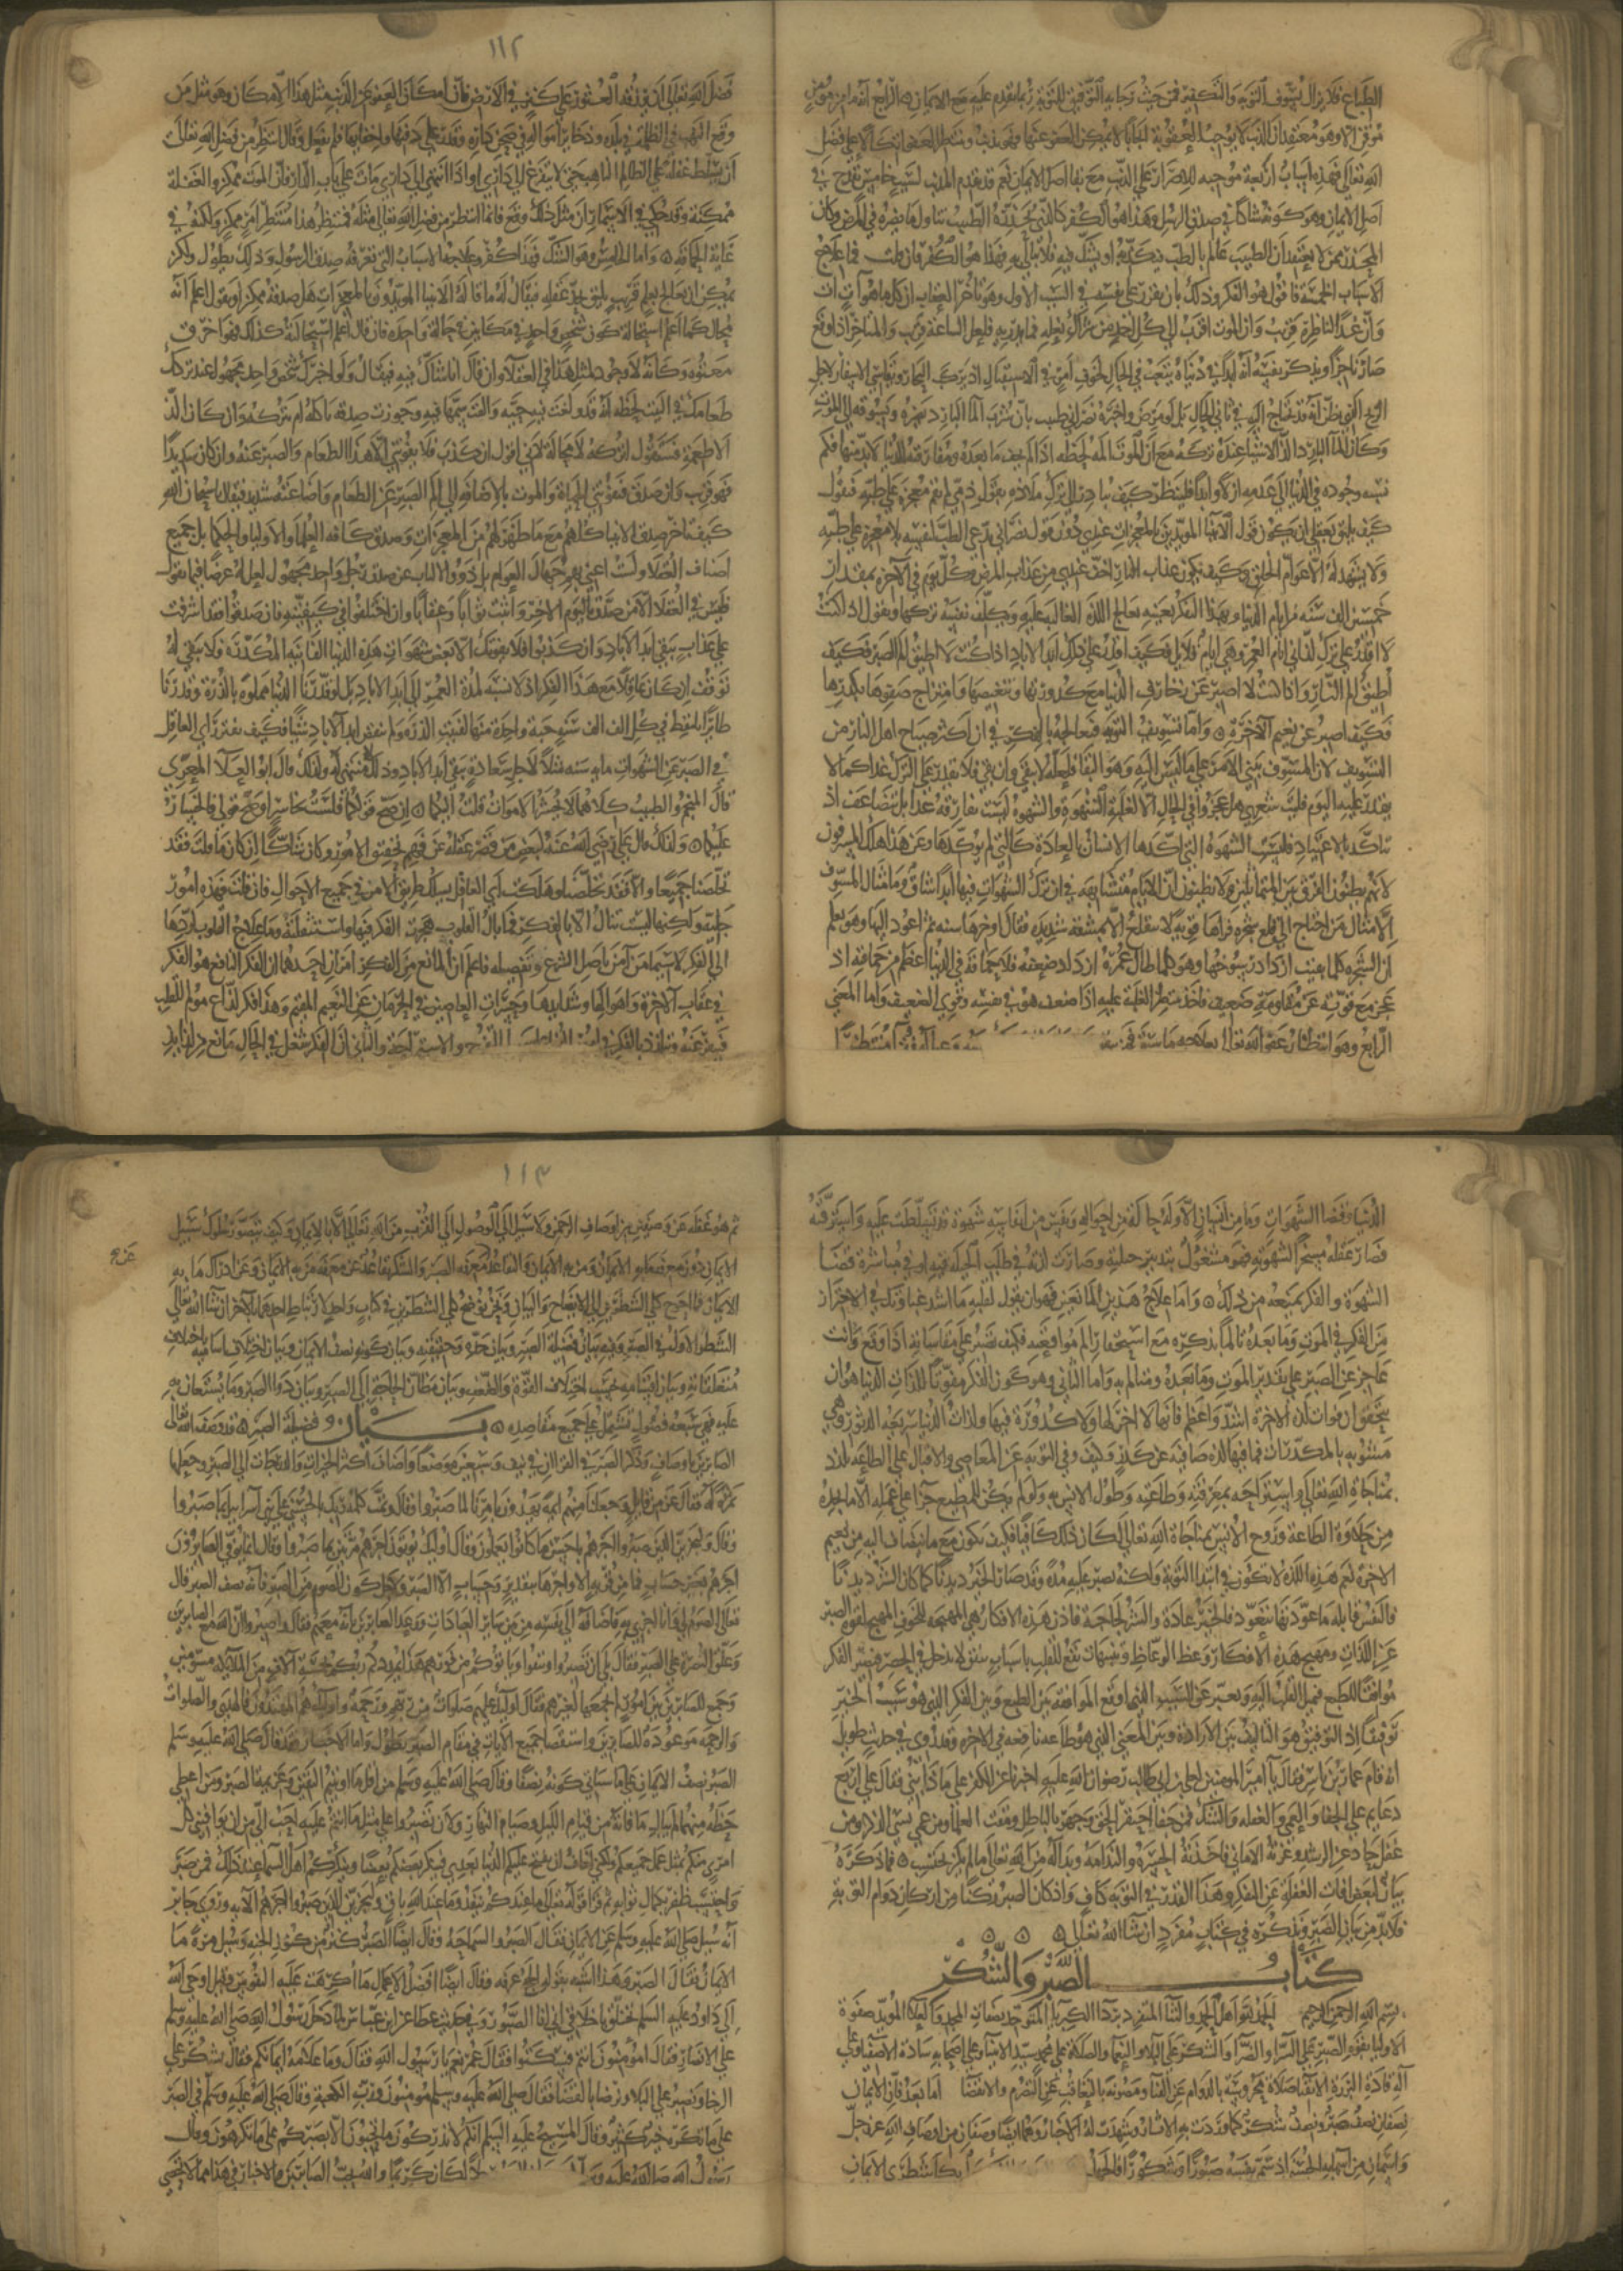 الطباع فلا يزال يسوف التوبة والتكفير فمن حيث رجايه التوفيق للتوبة ربما يقدم عليه مع الايمان الرابع انه ما من مؤمن
موقن الا وهو معتقد ان الذنب لا يوجب العقوبة ايجابا لا يمكن العفو عنها فهو يذنب وينتظر العفو اتكالا على فضل
الله تعالى فهذه اسباب اربعة موجبه للاصرار على الذنب مع بقا اصل الايمان نعم قد يقدم المذنب لسبب خامس يقدح في
اصل الايمان وهو كونه شاكا في صدق الرسل وهذا هو الكفر كالذي يحذره الطبيب تناول ما يضره في المرض وكان
المحذر ممن لا يعتقد ان الطبيب عالم بالطب فيكذبه او يشك فيه فلا يبالي به فهذا هو الكفر فان قلت فما علاج
الاسباب الخمسة فاقول هو الفكر وذلك بان يقرر على نفسه في السبب الاول وهو تاخر العقاب ان كل ما هو آت آت
وان غدا للناظره قريب وان الموت اقرب الى كل احد من شراك نعله فما يدريه فلعل الساعة قريب والمتاخر اذا وقع
صار ناجزا ويذكر نفسه انه ابدا في دنياه يتعب في الحال لخوف امر في الاستقبال اذ يركب البحار ويقاسي الاسفار لاجل
الربح الذي يظن انه قد يحتاج اليه في ثاني الحال بل لو مرض واخبره نصراني طبيب بان شرب الماء البارد يضره ويسوقه الى الموت
وكان الماء البارد الذ الاشيا عنده تركه مع ان الموت المه لحظه اذا لم يخف ما بعده ومفارقته للدنيا لا بد منها فكم
نسبه وجوده في الدنيا الى عدمه ازلا وابدا فلينظر كيف يبادر الى ترك ملاذه بقول ذمي لم تقم معجزة على طبه فيقول
كيف يليق بعقلي ان يكون قول الانبيا المويدين بالمعجزات عندي دون قول نصراني يدعي الطب لنفسه بلا معجزه على طبه
ولا يشهد له الا عوام الخلق وكيف يكون عذاب النار اخف عندي من عذاب المرض وكل يوم في الاخره بمقدار
خمسين الف سنه من ايام الدنيا وبهذا الفكر بعينه يعالج اللذة الغالبة عليه ويكلف نفسه تركها ويقول اذا كنت
لا اقدر على ترك لذاتي ايام العمر وهي ايام قلايل فكيف اقدر على ذلك ابد الاباد اذا كنت لا اطيق الم الصبر فكيف
اطيق الم النار واذا كنت لا اصبر عن زخارف الدنيا مع كدوراتها وتنغيصها وامتزاج صفوها بكدرها
فكيف اصبر عن نعيم الاخرة واما تسويف التوبه فيعالجه بالفكر في ان اكثر صياح اهل النار من
التسويف لان المسوف يبني الامر على ما ليس اليه وهو البقا فلعله لا يبقى وان بقي فلا يقدر على الترك غدا كما لا
يقدر عليه اليوم فليت شعري هل عجز في الحال الا لغلبة الشهوة والشهوة ليست تفارقه غدا بل تتضاعف اذ
تتاكد بالاعتياد فليست الشهوة التي اكدها الانسان بالعادة كالتي لم يوكدها وعن هذا هلك المسوفون
لانهم يظنون الفرق بين المتماثلين ولا يظنون ان الايام متشابهة في ان ترك الشهوات فيها ابدا شاق وما مثال المسوف
الا مثال من احتاج الى قلع شجره فراها قويه لا تنقلع الا بمشقه شديده فقال اوخرها سنه ثم اعود اليها وهو يعلم
ان الشجره كلما بقيت ازداد رسوخها وهو كلما طال عمره ازداد ضعفه فلا حماقة في الدنيا اعظم من حماقته اذ
عجز مع قوته عن مقاومة ضعيف فاخذ ينتظر الغلبة عليه اذا ضعف هو في نفسه وقوي الضعيف واما المعنى
الرابع وهو انتظار عفو الله تعالى فعلاجه ما سبق
١١٢
فضل الله تعالى ان يرزقه العثور على كنز في الارض فان امكان العفو عن الذنب مثل هذا الامكان وهو مثل من
وقع النهب من الظلمة في بلده وذخاير امواله في صحن داره وقدر على دفنها واخفايها فلم يفعل وقال انتظر من فضل الله تعالى
ان يسلط غفلة على الظالم الناهب حتى لا يتفرغ الى داري او اذا انتهى الى داري مات على باب الدار فان الموت ممكن والغفلة
ممكنة وقد حكي في الاسمار ان مثل ذلك وقع فانا انتظر من فضل الله تعالى مثله فمنتظر هذا منتظر امر ممكن ولكنه في
غاية الحماقة واما الخامس وهو الشك فهذا كفر وعلاجه الاسباب التي تعرفه صدق الرسول وذلك يطول ولكن
يمكن ان يعالج بعلم قريب يليق بحد عقله فيقال له ما قاله الانبيا المويدون بالمعجزات هل صدقه ممكن او يقول اعلم انه
محال كما اعلم استحالة كون شخص واحد في مكانين في حالة واحدة فان قال اعلم استحالته كذلك فهو اخرق
معتوه وكانه لا وجود لمثل هذا في العقلا وان قال انا شاك فيه فيقال ولو اخبرك شخص واحد مجهول عند تركك
طعامك في البيت لحظه انه قد ولغت فيه حيه والقت سمها فيه وجوزت صدقه تاكله ام تتركه وان كان الذ
الاطعمة فسيقول اتركه لا محالة لاني اقول ان كذب فلا يفوتني الا هذا الطعام والصبر عنه وان كان شديدا
فهو قريب وان صدق فتفوتني الحياة والموت بالاضافة الى الم الصبر عن الطعام واضاعته شديد فيقال له سبحان الله
كيف تاخر صدق الانبيا كلهم مع ما ظهر لهم من المعجزات وصدق كافة العلما والاوليا والحكما بل جميع
اصناف العقلا ولست اعني بهم جهال العوام بل ذوو الالباب عن صدق رجل واحد مجهول لعل له غرضا فيما يقول
فليس في العقلا الا من صدق باليوم الاخر واثبت ثوابا وعقابا وان اختلفوا في كيفيته فان صدقوا فقد اشرفت
على عذاب يبقى ابد الاباد وان كذبوا فلا يفوتك الا بعض شهوات هذه الدنيا الفانية المكدرة فلا يبقى له
توقف ان كان عاقلا مع هذا الفكر اذ لا نسبة لمدة العمر الى ابد الاباد بل لو قدرنا الدنيا مملوه بالذرة وقدرنا
طايرا يلتقط في كل الف الف سنه حبة واحدة منها لفنيت الذرة ولم ينقص ابد الاباد شيئا فكيف يفتر راي العاقل
في الصبر عن الشهوات مايه سنه مثلا لاجل سعادة تبقى ابد الاباد ولذلك قال ابو العلا المعري
قال المنجم والطبيب كلاهما لا تحشر الاموات قلت اليكما ان صح قولكما فلست بخاسر او صح قولي فالخسار
عليكما ولذلك قال علي رضي الله عنه لبعض من قصر عقله عن فهم تحقيق الامور وكان شاكا ان كان ما قلت فقد
تخلصنا جميعا والا فقد تخلصنا وهلكت اي العاقل يسلك طريق الامن في جميع الاحوال فان قلت فهذه امور
جلية ولكنها ليست تنال الا بالفكر فما بال القلوب هجرت الفكر فيها واستثقلته وما علاج القلوب لردها
الى الفكر لا سيما من آمن باصل الشرع وتفصيله فاعلم ان المانع من الفكر امران احدهما ان الفكر النافع هو الفكر
في عقاب الاخرة واهوالها وشدايدها وحسرات العاصين في الحرمان عن النعيم المقيم وهذا فكر لذاع مولم للقلب
فينفر عنه ويتلذذ بالفكر في امور الدنيا والثاني ان الفكر شغل في الحال مانع من لذايذ
الدنيا وقضا الشهوات وما من انسان الا وله في كل حالة من احواله ونفس من انفاسه شهوة قد تسلطت عليه واسترقته
فصار عقله مسخرا لشهوته فهو مشغول بتدبير حيلته وصارت لذته في طلب الحيلة فيه او في مباشرة قضا
الشهوة والفكر يمنعه من ذلك واما علاج هذين المانعين فهو ان يقول لقلبه ما اشد غباوتك في الاحتراز
من الفكر في الموت وما بعده تالما بذكره مع استحقار الم مواقعته فكيف تصبر على مقاساته اذا وقع وانت
عاجز عن الصبر على تقدير الموت وما بعده ومتالم به واما الثاني وهو كون الفكر مفوتا للذات الدنيا هو ان
يتحقق ان فوات لذات الاخرة اشد واعظم فانها لا اخر لها ولا كدورة فيها ولذات الدنيا سريعة الدثور وهي
مشوبه بالمكدرات فما فيها لذه صافيه عن كدر وكيف وفي التوبه عن المعاصي والاقبال على الطاعه تلذذ
بمناجاة الله تعالى واستراحه بمعرفته وطاعته وطول الانس به ولو لم يكن للمطيع جزا على عمله الا ما يجده
من حلاوة الطاعة وروح الانس بمناجاة الله تعالى لكان ذلك كافيا فكيف بما ينضاف اليه من نعيم
الاخرة نعم هذه اللذة لا تكون في ابتدا التوبة ولكنه يصبر عليه مدة وقد صار الخير ديدنا كما كان الشر ديدنا
فالنفس قابله ما عودتها تتعود فالخير عادة والشر لجاجة فاذن هذه الافكار هي المهيجه للخوف المهيج لقوة الصبر
عن اللذات ومهيج هذه الافكار وعظ الوعاظ وتنبيهات تقع للقلب باسباب تتفق لا تدخل في الحصر فيصير الفكر
موافقا للطبع فيميل القلب اليه ويعبر عن السبب الذي اوقع الموافقه بين الطبع وبين الفكر الذي هو سبب الخير
توفيقا اذ التوفيق هو التاليف بين الارادة وبين المعنى الذي هو طاعه نافعه في الاخره وقد روي في حديث طويل
انه قام عمار بن ياسر فقال يا امير المومنين لعلي بن ابي طالب رضوان الله عليه اخبرنا عن الكفر على ماذا بني فقال علي اربع
دعايم على الجفا والعمى والغفله والشك فمن جفا احتقر الحق وجهر بالباطل ومقت العلما ومن عمي نسي الذكر ومن
غفل حاد عن الرشد وغرته الاماني فاخذته الحسرة والندامه وبدا له من الله تعالى ما لم يكن يحتسب فما ذكرناه
بيان لبعض افات الغفلة عن التفكر وهذا القدر في التوبه كاف واذ كان الصبر ركنا من اركان دوام التوبة
فلا بد من بيان الصبر ونذكره في كتاب مفرد ان شا الله تعالى
كتاب الصبر والشكر
بسم الله الرحمن الرحيم الحمد لله اهل الحمد والثنا المتفرد بردا الكبريا المتوحد بصفات المجد والعلا المويد صفوة
الاوليا بقوة الصبر على السرا والضرا والشكر على البلا والنعما والصلاة على محمد سيد الانبيا وعلى اصحابه سادة الاصفيا وعلى
آله قادة البررة الاتقيا صلاة محروسة بالدوام عن الفنا ومصونة بالتعاقب عن التصرم والانقضا اما بعد فان الايمان
نصفان نصف صبر ونصف شكر كما وردت به الاثار وشهدت له الاخبار وهما ايضا وصفان من اوصاف الله عز وجل
واسمان من اسمايه الحسنى اذ سمى نفسه صبورا وشكورا فالجهل بكلا شطري الايمان
١١٣
ثم هو غفله عن وصفين من اوصاف الرحمن ولا سبيل الى الوصول الى القرب من الله تعالى الا بالايمان وكيف يتصور سلوك سبيل
الايمان دون معرفة ما به الايمان ومن به الايمان والتقاعد عن معرفة الصبر والشكر تقاعد عن معرفة من به الايمان وعن ادراك ما به
الايمان فما احوج كلي الشطرين الى الايضاح والبيان ونحن نوضح كلي الشطرين في كتاب واحد لارتباط احدهما بالاخر ان شا الله تعالى
الشطر الاول في الصبر وفيه بيان فضيلة الصبر وبيان حده وحقيقته وبيان كونه نصف الايمان وبيان اختلاف اساميه باختلاف
متعلقاته وبيان اقسامه بحسب اختلاف القوة والضعف وبيان مظان الحاجة الى الصبر وبيان دوا الصبر وما يستعان به
عليه فهي سبعه فصول تشتمل على جميع مقاصده بيان فضيلة الصبر قد وصف الله تعالى
الصابرين باوصاف وذكر الصبر في القران في نيف وسبعين موضعا واضاف اكثر الخيرات والدرجات الى الصبر وجعلها
ثمرة له فقال عز من قايل وجعلنا منهم ايمة يهدون بامرنا لما صبروا وقال وتمت كلمة ربك الحسنى على بني اسرايل بما صبروا
وقال ولنجزين الذين صبروا اجرهم باحسن ما كانوا يعملون وقال اوليك يوتون اجرهم مرتين بما صبروا وقال انما يوفى الصابرون
اجرهم بغير حساب فما من قربة الا واجرها بتقدير وحساب الا الصبر ولاجل كون الصوم من الصبر وانه نصف الصبر قال
تعالى الصوم لي وانا اجزي به فاضافه الى نفسه من بين ساير العبادات ووعد الصابرين بانه معهم فقال واصبروا ان الله مع الصابرين
وعلق النصرة على الصبر فقال بلى ان تصبروا وتتقوا وياتوكم من فورهم هذا يمددكم ربكم بخمسة آلاف من الملايكه مسومين
وجمع للصابرين بين امور لم يجمعها لغيرهم فقال اوليك عليهم صلوات من ربهم ورحمة واوليك هم المهتدون فالهدى والصلوات
والرحمه موعودة للصابرين واستقصا جميع الايات في مقام الصبر يطول واما الاخبار فقد قال صلى الله عليه وسلم
الصبر نصف الايمان على ما سياتي كونه نصفا وقال صلى الله عليه وسلم من اقل ما اوتيتم اليقين وعزيمة الصبر ومن اعطي
حظه منهما لم يبال ما فاته من قيام الليل وصيام النهار ولان تصبروا على مثل ما انتم عليه احب الي من ان يوافيني كل
امرئ منكم بمثل عمل جميعكم ولكني اخاف ان يفتح عليكم الدنيا بعدي فينكر بعضكم بعضا وينكركم اهل السما عند ذلك فمن صبر
واحتسب ظفر بكمال ثوابه ثم قرا قوله تعالى ما عندكم ينفد وما عند الله باق ولنجزين الذين صبروا اجرهم الآية وروى جابر
انه سيل صلى الله عليه وسلم عن الايمان فقال الصبر والسماحة وقال ايضا الصبر كنز من كنوز الجنه وسيل مرة ما
الايمان فقال الصبر وهذا يشبه بقوله الحج عرفه وقال ايضا افضل الاعمال ما اكرهت عليه النفوس وقيل اوحى الله
الى داود عليه السلم تخلق باخلاقي اني انا الصبور وفي حديث عطا عن ابن عباس لما دخل رسول الله صلى الله عليه وسلم
على الانصار فقال امؤمنون انتم فسكتوا فقال عمر نعم يا رسول الله فقال وما علامة ايمانكم فقال نشكر على
الرخا ونصبر على البلا ونرضا بالقضا فقال صلى الله عليه وسلم مومنون ورب الكعبة وقال صلى الله عليه وسلم في الصبر
على ما تكره خير كثير وقال المسيح عليه السلم انكم لا تدركون ما تحبون الا بصبركم على ما تكرهون وقال
رسول الله صلى الله عليه لكان كريما والله يحب الصابرين والاخبار في هذا مما لا تحصى